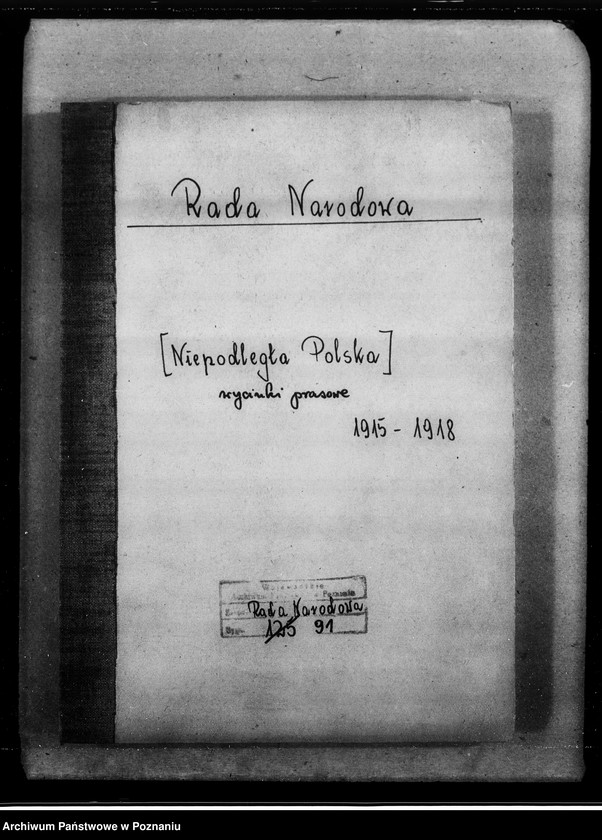 Rada Narodowa
[Niepodległa Polska]
wycinki prasowe
1915 - 1918
Wojewódzkie
Archiwum w Poznaniu
Rada Narodowa
125 91
Archiwum Państwowe w Poznaniu